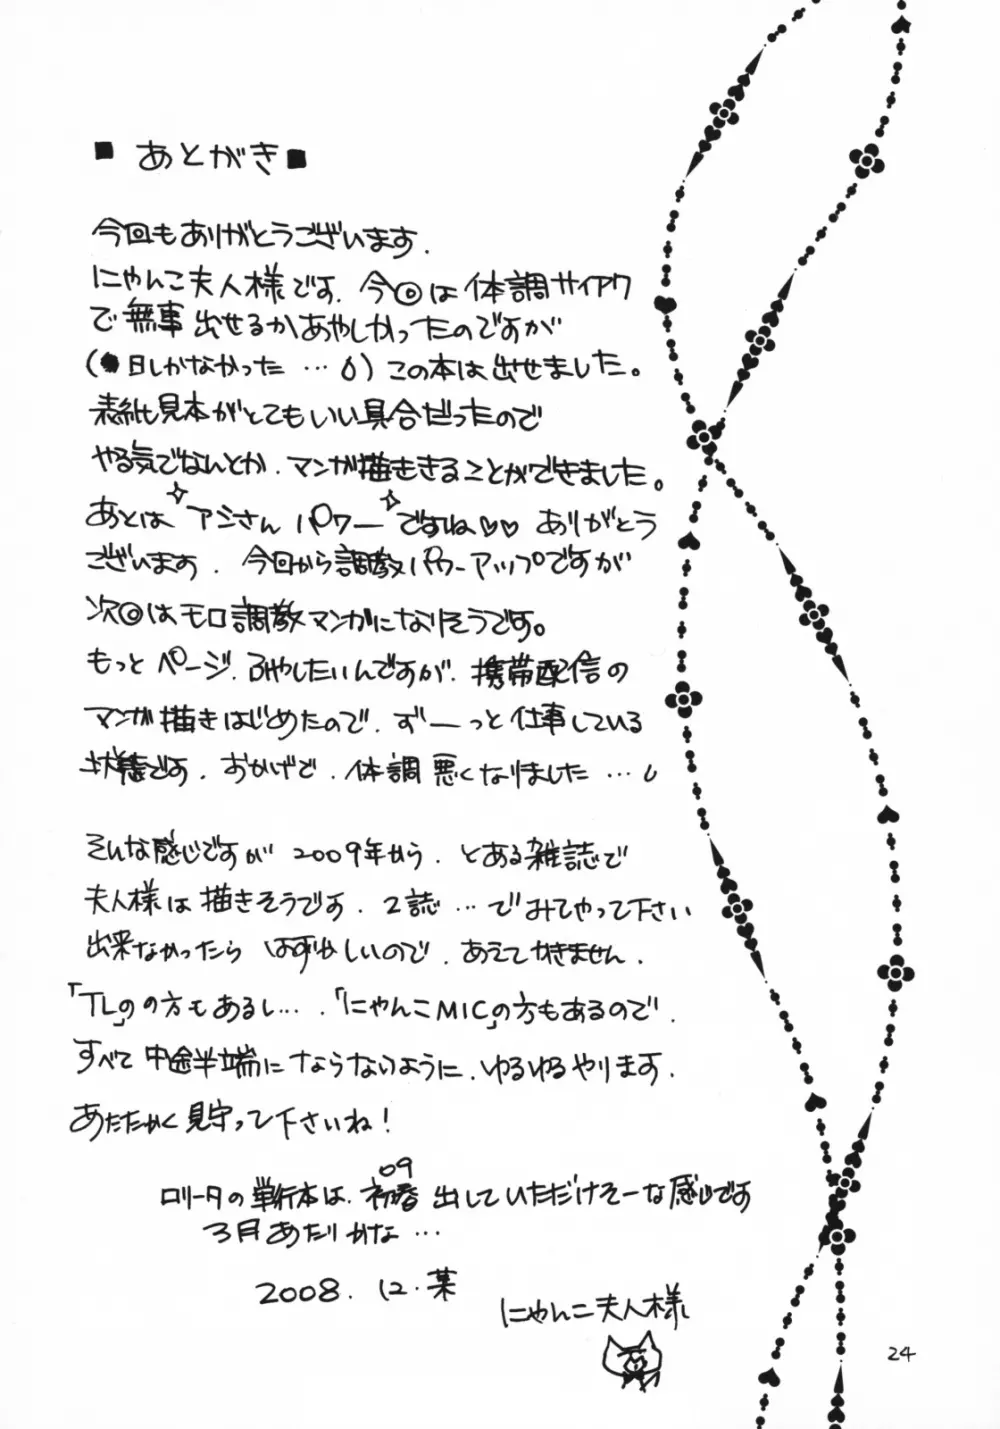 ■あとがき■
今回もありがとうございます.
にゃんこ夫人様です. 今回は体調サイアク
で無事出せるかあやしかったのですが
(●日しかなかった…) この本は出せました。
表紙見本がとてもいい具合だったので
やる気でなんとか. マンガ描ききることができました。
あとは アシさん パワー ですね♡♡ ありがとう
ございます. 今回から調教パワーアップですが
次回はモロ調教マンガになりそうです。
もっとページ.ふやしたいんですが. 携帯配信の
マンガ描きはじめたので. ずーっと仕事している
状態です. おかげで. 体調悪くなりました…
そんな感じですが 2009年から. とある雑誌で
夫人様は描きそうです. 2誌…でみてやって下さい
出来なかったら はずかしいので. あえてかきません.
「TLの」の方もあるし….「にゃんこMIC」の方もあるので.
すべて中途半端にならないように.ゆるゆるやります.
あたたかく見守って下さいね!
09
ロリータの単行本は. 初春 出していただけそーな感じです
3月あたりかな…
2008.12.某
にゃんこ夫人様
24